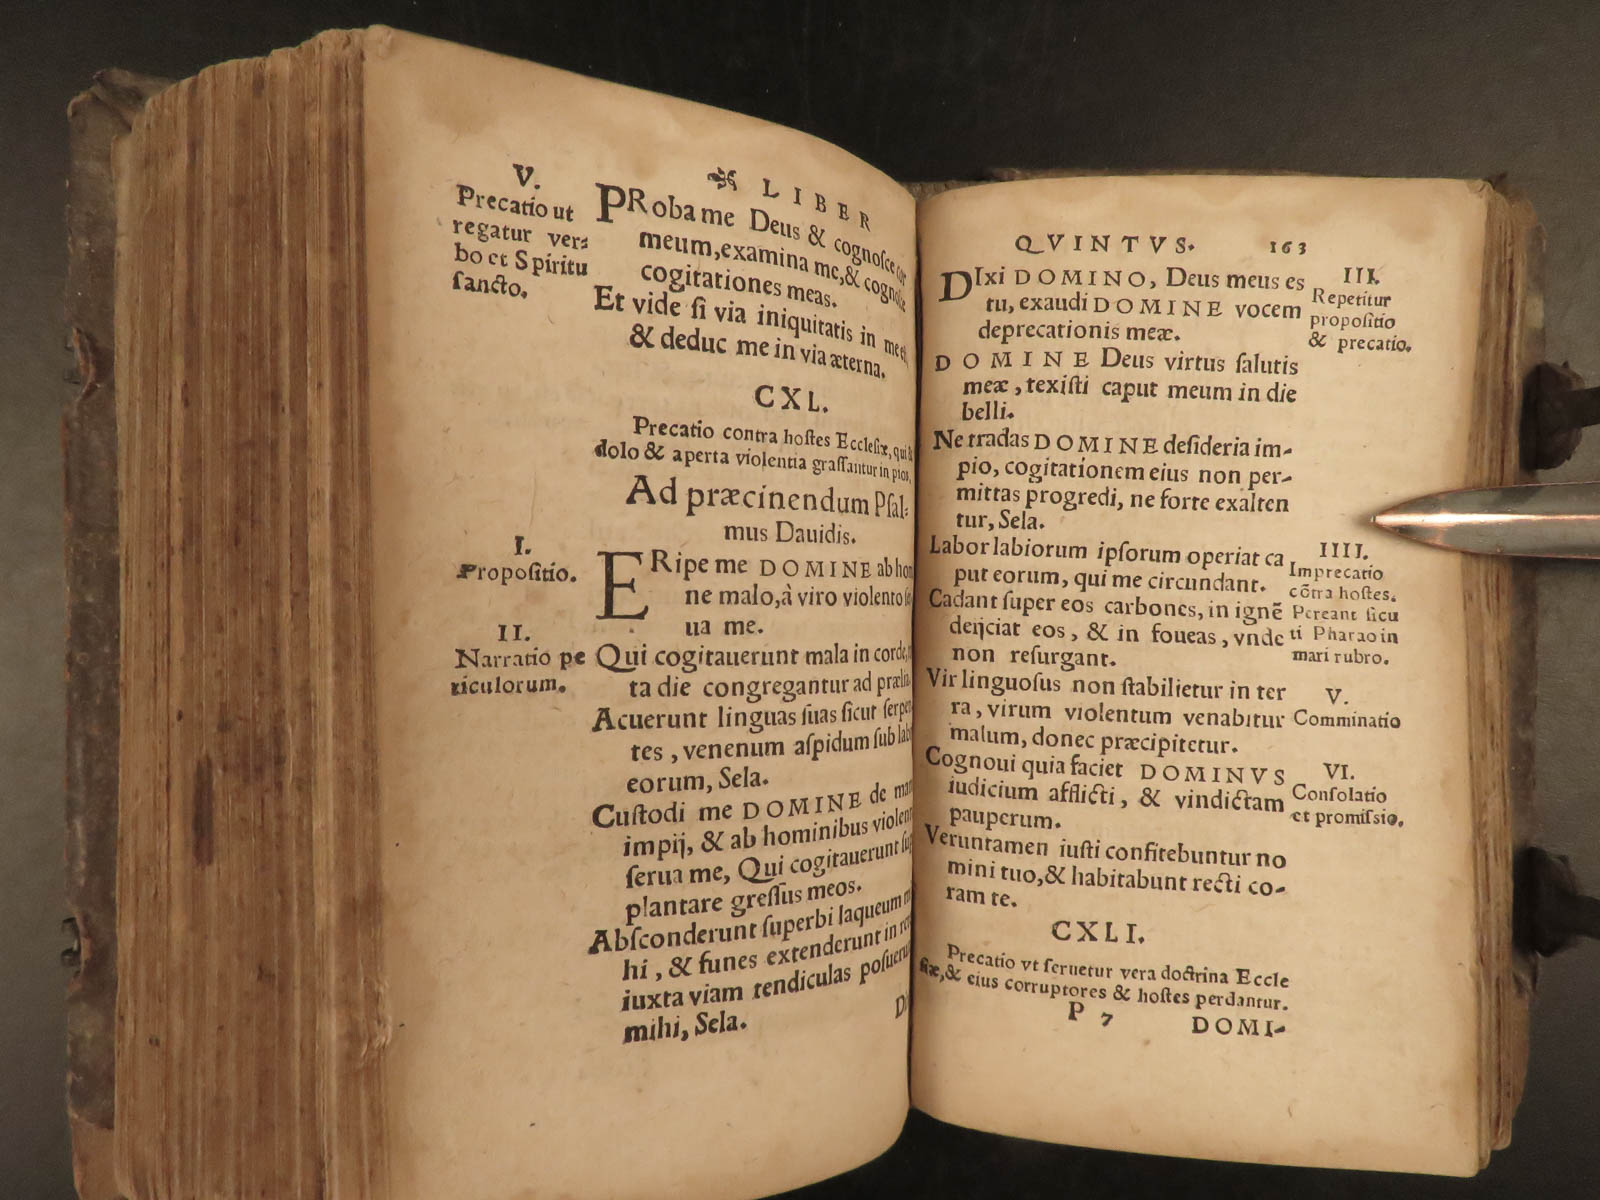 LIBER
V.
Precatio ut
regatur ver⸗
bo et Spiritu
ſancto.
PRoba me Deus & cognoſce cor
meum, examina me, & cognoſce
cogitationes meas.
Et vide ſi via iniquitatis in me eſt,
& deduc me in via æterna.
CXL.
Precatio contra hoſtes Eccleſiæ, qui
dolo & aperta violentia graſſantur in pios.
Ad præcinendum Pſal⸗
mus Dauidis.
I.
Propoſitio.
ERipe me DOMINE ab
ne malo, à viro violento
ua me.
II.
Narratio pe
riculorum.
Qui cogitauerunt mala in corde,
ta die congregantur ad
Acuerunt linguas ſuas ſicut ſerpen
tes, venenum aſpidum ſub
eorum, Sela.
Cuſtodi me DOMINE de
impij, & ab hominibus
ſerua me, Qui cogitauerunt
plantare greſſus meos.
Abſconderunt ſuperbi laqueum
hi, & funes extenderunt in
iuxta viam tendiculas
mihi, Sela.
QVINTVS. 163
DIxi DOMINO, Deus meus es
tu, exaudi DOMINE vocem
deprecationis meæ.
III.
Repetitur
propoſitio
& precatio.
DOMINE Deus virtus ſalutis
meæ, texiſti caput meum in die
belli.
Ne tradas DOMINE deſideria im-
pio, cogitationem eius non per-
mittas progredi, ne forte exalten
tur, Sela.
Labor labiorum ipſorum operiat ca
put eorum, qui me circundant.
IIII.
Imprecatio
cõtra hoſtes.
Pereant ſicu
ti Pharao in
mari rubro.
Cadant ſuper eos carbones, in ignẽ
deijciat eos, & in foueas, vnde
non reſurgant.
Vir linguoſus non ſtabilietur in ter
ra, virum violentum venabitur
malum, donec præcipitetur.
V.
Comminatio
Cognoui quia faciet DOMINVS
iudicium afflicti, & vindictam
pauperum.
VI.
Conſolatio
et promiſsio.
Veruntamen iuſti confitebuntur no
mini tuo, & habitabunt recti co-
ram te.
CXLI.
Precatio vt ſeruetur vera doctrina Eccle
ſiæ, & eius corruptores & hoſtes perdantur.
P 7 DOMI-